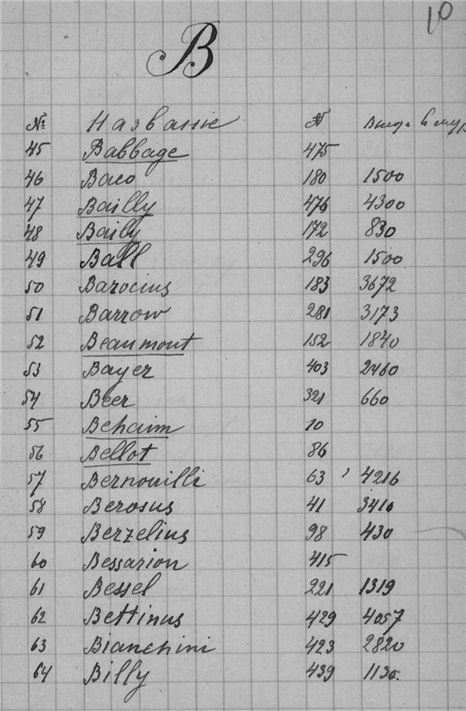 10
B
№ Название № Высота в
45 Babbage 475
46 Baco 180 1500
47 Bailly 476 4300
48 Baily 172 830
49 Ball 296 1500
50 Barocius 183 3672
51 Barrow 281 3173
52 Beaumont 152 1840
53 Bayer 403 2460
54 Beer 321 660
55 Behaim 10
56 Bellot 86
57 Bernouilli 63 4216
58 Berosus 41 3410
59 Berzelius 98 430
60 Bessarion 415
61 Bessel 221 1319
62 Bettinus 429 4057
63 Bianchini 423 2820
64 Billy 439 1130.